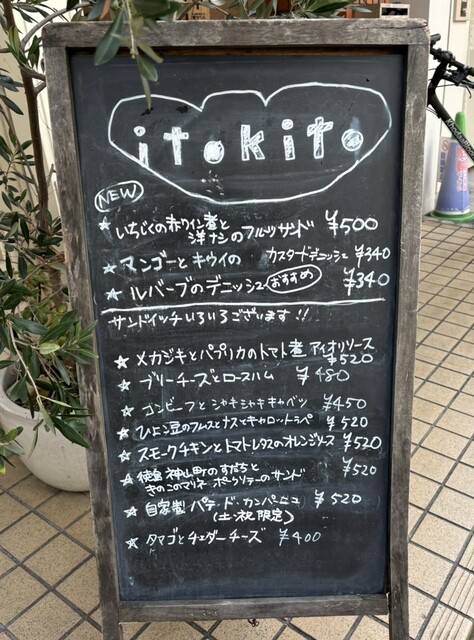 itokito
NEW
★ いちじくの赤ワイン煮と
洋ナシのフルーツサンド ¥500
★ マンゴーとキウイの カスタードデニッシュ ¥340
★ ルバーブのデニッシュ おすすめ ¥340
サンドイッチいろいろございます!!
☆ メカジキとパプリカのトマト煮 アイオリソース
¥520
☆ ブリーチーズとロースハム ¥480
☆ コンビーフとシャキシャキキャベツ ¥450
☆ ひよこ豆のフムスとナスとキャロットラペ ¥520
☆ スモークチキンとトマトレタスのオレンジソース ¥520
☆ 徳島 神山町のすだちと
きのこのマリネ ポークソテーのサンド ¥520
☆ 自家製 パテ・ド・カンパーニュ ¥520
(土・祝 限定)
☆ タマゴとチェダーチーズ ¥400